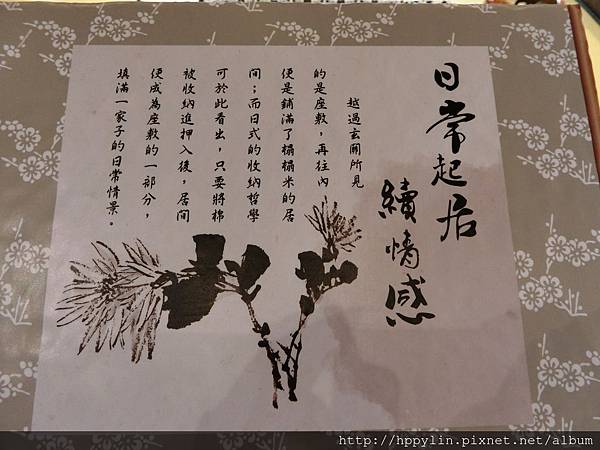 日常起居
續情感
越過玄關所見
的是座敷，再往內
便是鋪滿了榻榻米的居
間；而日式的收納哲學
可於此看出，只要將棉
被收納進押入後，居間
便成為座敷的一部分，
填滿一家子的日常情景。
http://hppylin.pixnet.net/album